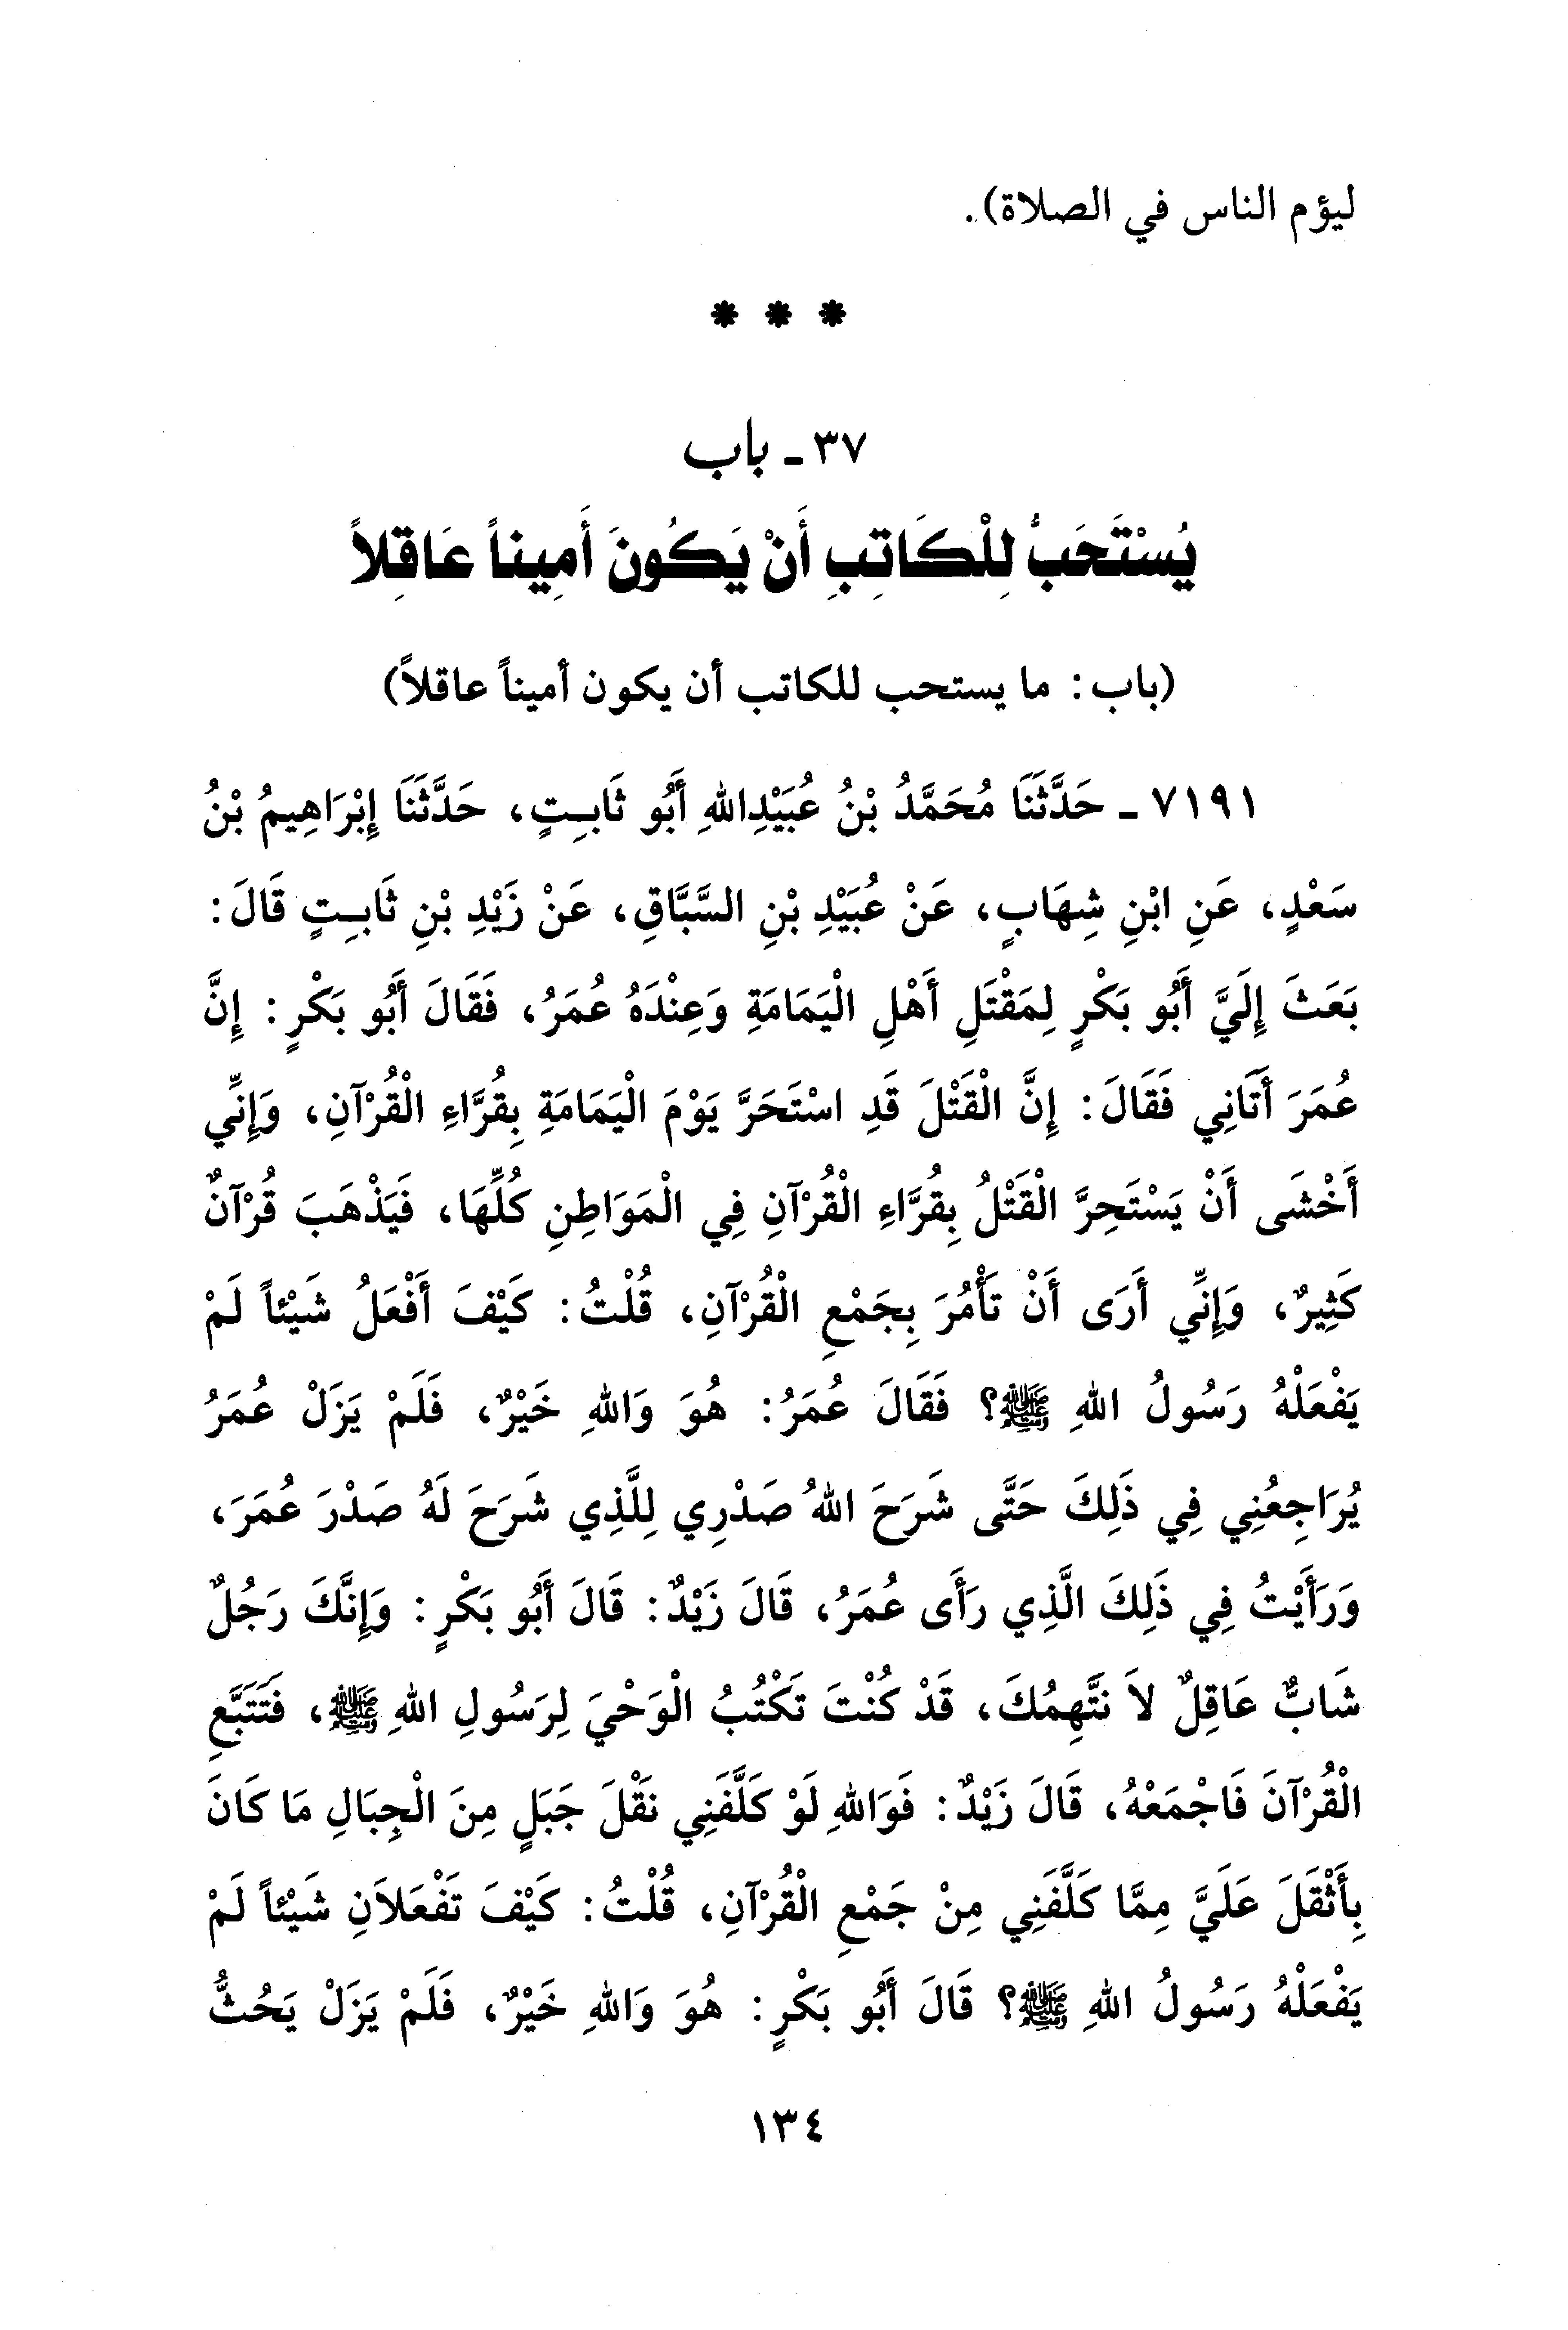 ليؤم الناس في الصلاة).
* * *
٣٧ - باب
يُسْتَحَبُّ لِلْكَاتِبِ أَنْ يَكُونَ أَمِيناً عَاقِلاً
(باب: ما يستحب للكاتب أن يكون أميناً عاقلاً)
٧١٩١ - حَدَّثَنَا مُحَمَّدُ بْنُ عُبَيْدِاللهِ أَبُو ثَابِتٍ، حَدَّثَنَا إِبْرَاهِيمُ بْنُ
سَعْدٍ، عَنِ ابْنِ شِهَابٍ، عَنْ عُبَيْدِ بْنِ السَّبَّاقِ، عَنْ زَيْدِ بْنِ ثَابِتٍ قَالَ:
بَعَثَ إِلَيَّ أَبُو بَكْرٍ لِمَقْتَلِ أَهْلِ الْيَمَامَةِ وَعِنْدَهُ عُمَرُ، فَقَالَ أَبُو بَكْرٍ: إِنَّ
عُمَرَ أَتَانِي فَقَالَ: إِنَّ الْقَتْلَ قَدِ اسْتَحَرَّ يَوْمَ الْيَمَامَةِ بِقُرَّاءِ الْقُرْآنِ، وَإِنِّي
أَخْشَى أَنْ يَسْتَحِرَّ الْقَتْلُ بِقُرَّاءِ الْقُرْآنِ فِي الْمَوَاطِنِ كُلِّهَا، فَيَذْهَبَ قُرْآنٌ
كَثِيرٌ، وَإِنِّي أَرَى أَنْ تَأْمُرَ بِجَمْعِ الْقُرْآنِ، قُلْتُ: كَيْفَ أَفْعَلُ شَيْئاً لَمْ
يَفْعَلْهُ رَسُولُ اللهِ ﷺ؟ فَقَالَ عُمَرُ: هُوَ وَاللهِ خَيْرٌ، فَلَمْ يَزَلْ عُمَرُ
يُرَاجِعُنِي فِي ذَلِكَ حَتَّى شَرَحَ اللهُ صَدْرِي لِلَّذِي شَرَحَ لَهُ صَدْرَ عُمَرَ،
وَرَأَيْتُ فِي ذَلِكَ الَّذِي رَأَى عُمَرُ، قَالَ زَيْدٌ: قَالَ أَبُو بَكْرٍ: وَإِنَّكَ رَجُلٌ
شَابٌّ عَاقِلٌ لاَ نَتَّهِمُكَ، قَدْ كُنْتَ تَكْتُبُ الْوَحْيَ لِرَسُولِ اللهِ ﷺ، فَتَتَبَّعِ
الْقُرْآنَ فَاجْمَعْهُ، قَالَ زَيْدٌ: فَوَاللهِ لَوْ كَلَّفَنِي نَقْلَ جَبَلٍ مِنَ الْجِبَالِ مَا كَانَ
بِأَثْقَلَ عَلَيَّ مِمَّا كَلَّفَنِي مِنْ جَمْعِ الْقُرْآنِ، قُلْتُ: كَيْفَ تَفْعَلاَنِ شَيْئاً لَمْ
يَفْعَلْهُ رَسُولُ اللهِ ﷺ؟ قَالَ أَبُو بَكْرٍ: هُوَ وَاللهِ خَيْرٌ، فَلَمْ يَزَلْ يَحُثُّ
١٣٤